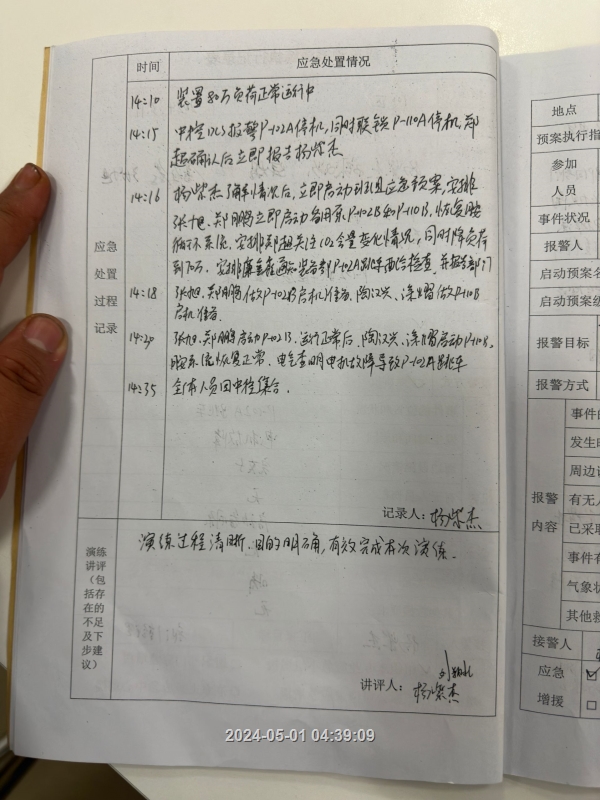 时间 应急处置情况
14:10 装置80万负荷正常运行中
14:15 中控DCS报警P-102A停机,同时联锁P-110A停机,郑
超确认后立即报告杨紫杰
14:16 杨紫杰了解情况后,立即启动应急预案,安排
张旭、郑鹏立即启动备用泵P-102B和P-110B,恢复脱
循环系统,安排郑超关注CO2含量变化情况,同时降负荷
到70万,安排通知装备部P-102A跳车配合检查,并报告部门
14:18 张旭、郑鹏做P-102B启机准备,陶汉兴、涂熠做P-110B
启机准备.
14:20 张旭、郑鹏启动P-102B,运行正常后,陶汉兴、涂熠启动P-110B,
脱系统恢复正常,电气查明电机故障导致P-102A跳车
14:35 全体人员回中控集合.
应急
处置
过程
记录
记录人:杨紫杰
演练
讲评
(包
括存
在的
不足
及下
步建
议)
演练过程清晰、目的明确,有效完成本次演练.
讲评人:
杨紫杰
地点
预案执行指
参加
人员
事件状况
报警人
启动预案名
启动预案级
报警目标
报警方式
报警
内容
事件的
发生时
周边
有无人
已采取
事件有
气象状
其他救
接警人
应急
增援
2024-05-01 04:39:09